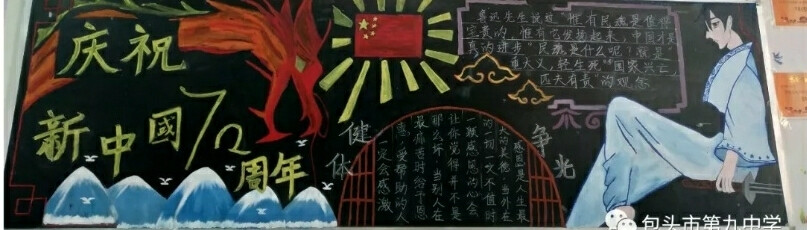 庆祝
新中國70
周年
鲁迅先生说过"惟有民魂是值得
宝贵的，惟有它发扬起来，中国才有
真的进步"民魂是什么呢！就是"
重大义，轻生死""国家兴亡
匹夫有责"的观念
健体
争光
感恩是人生最
大的美德，当外在
的一切一文不值时
一颗感恩的心会
让你觉得并不是
那么坏，当别人在
最痛苦时给予恩
惠，受帮助的人
一定会感激
包头市第九中学